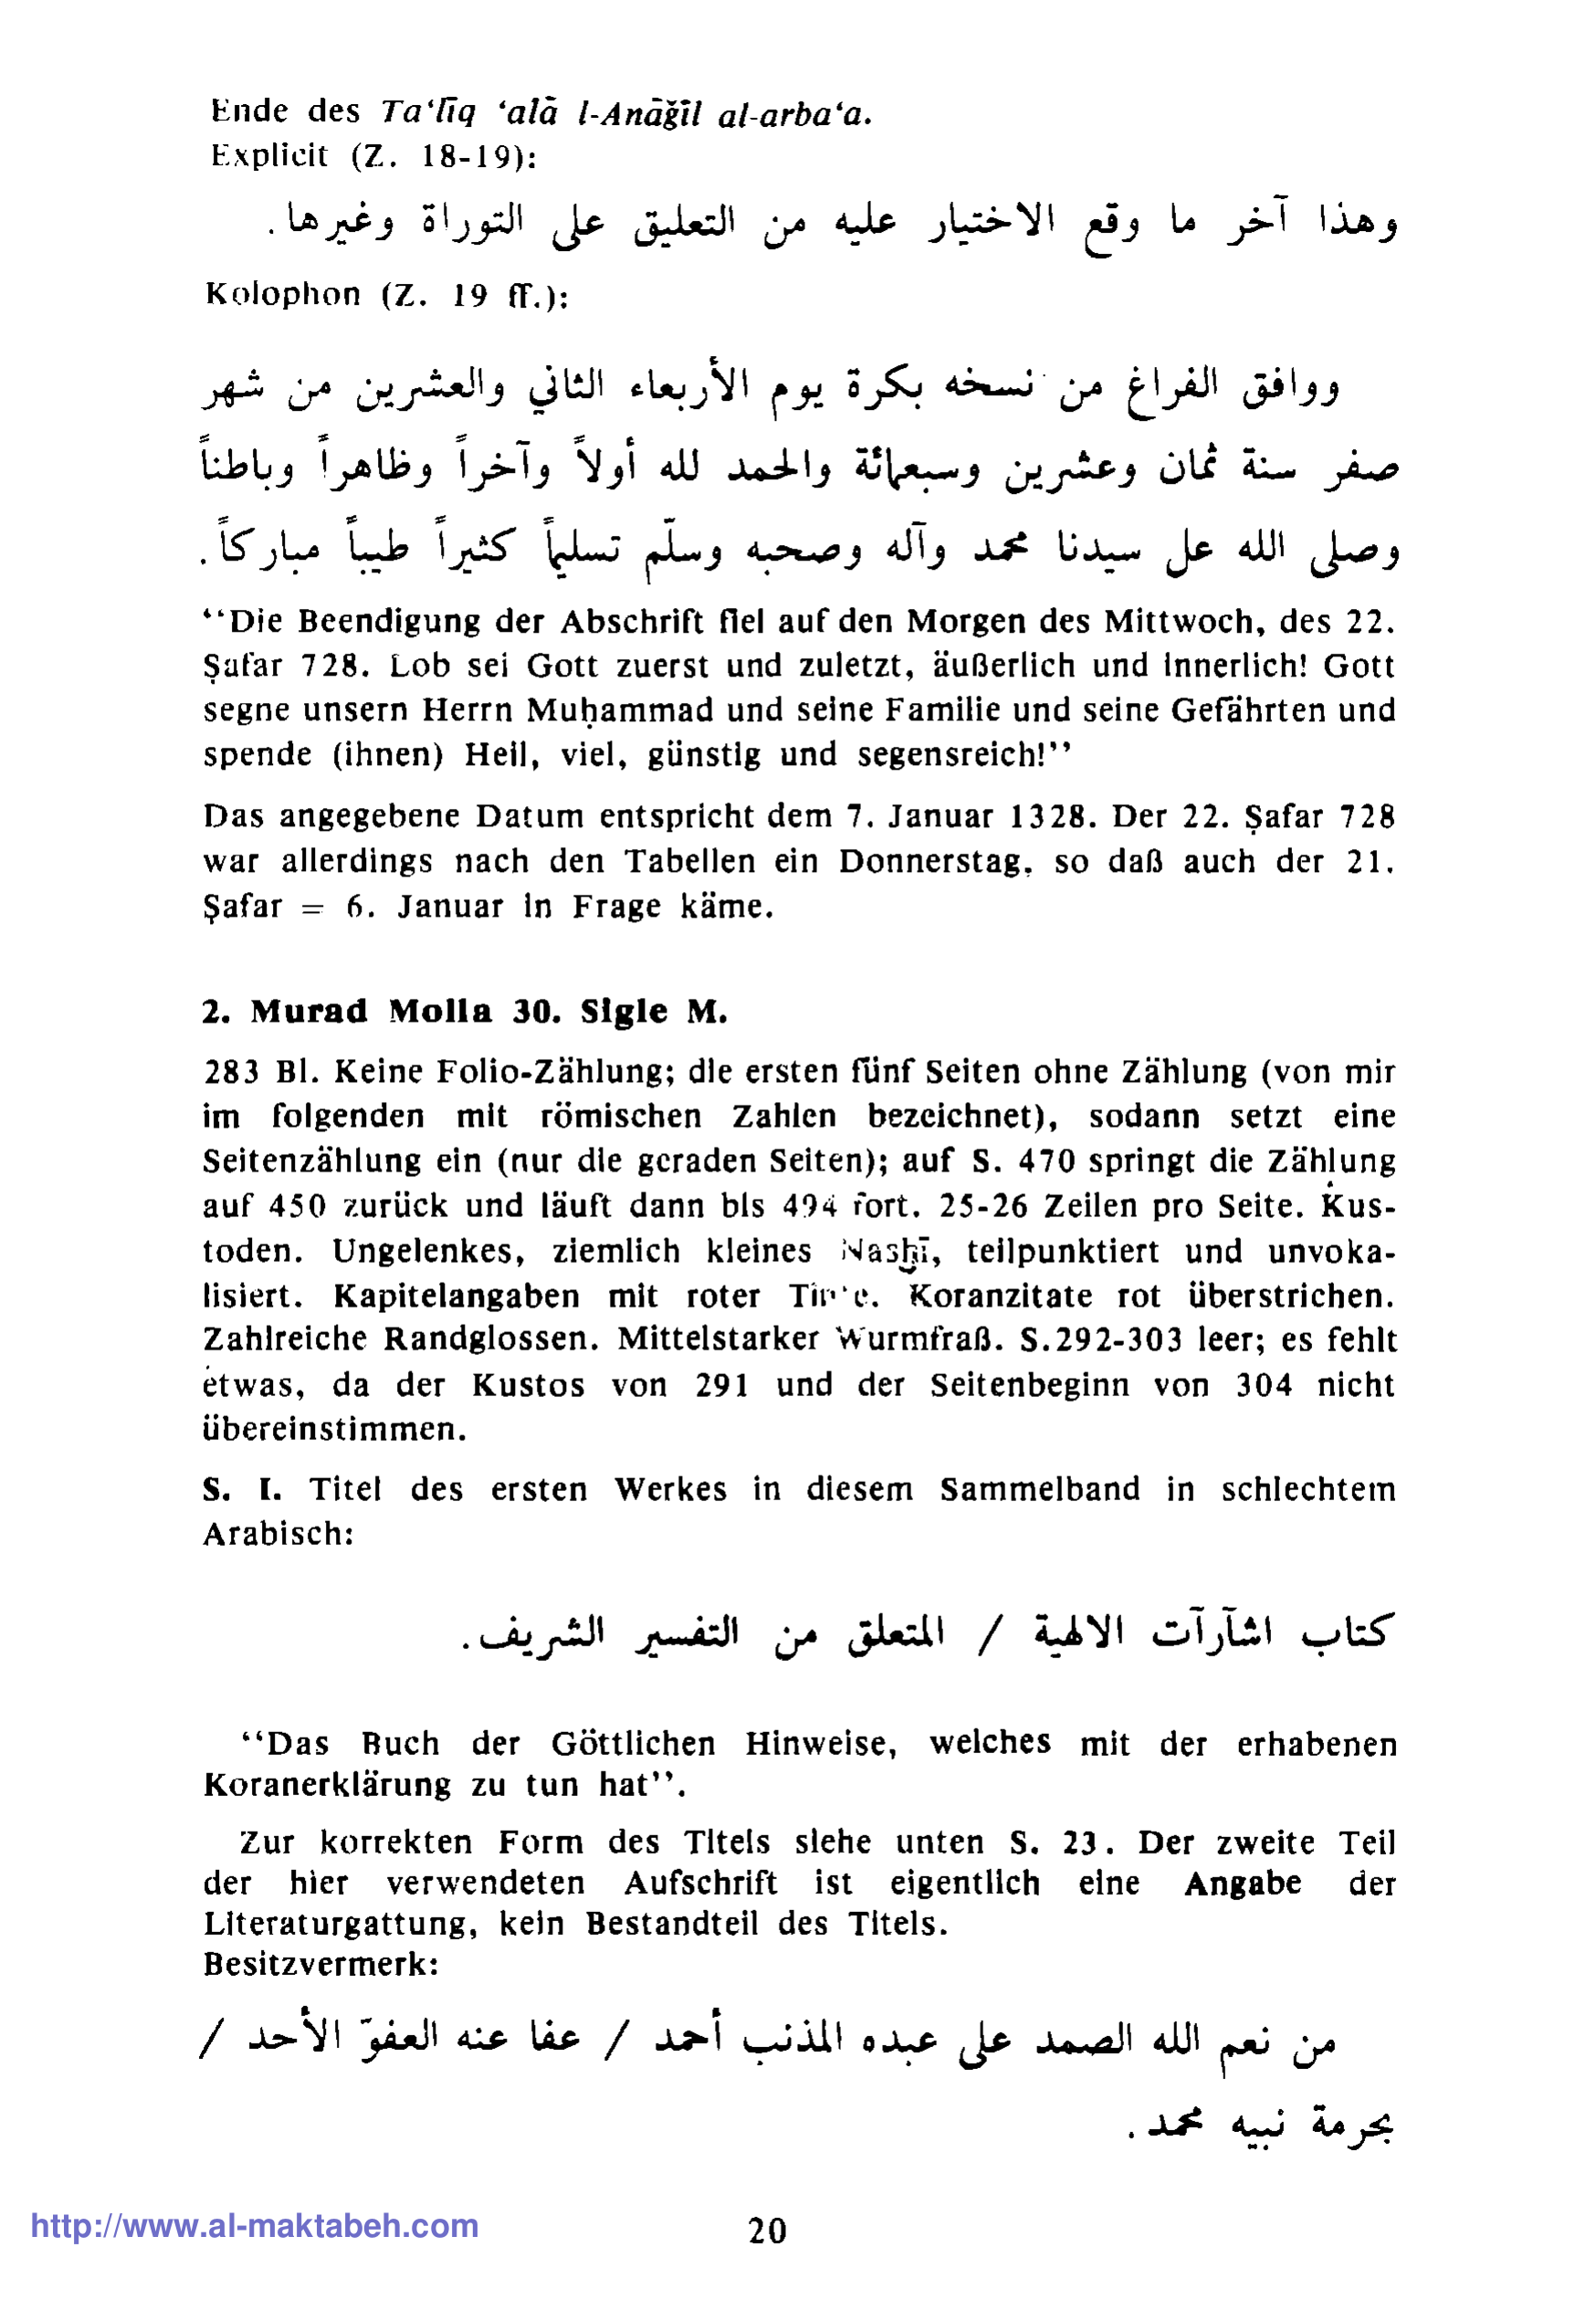 Ende des Ta‘līq ‘alā l-Anāǧīl al-arba‘a.
Explicit (Z. 18-19):
وهذا آخر ما وقع الاختيار عليه من التعليق على التوراة وغيرها .
Kolophon (Z. 19 ff.):
ووافق الفراغ من نسخه بكرة يوم الأربعاء الثاني والعشرين من شهر
صفر سنة ثمان وعشرين وسبعمائة والحمد لله أولاً وآخراً وظاهراً وباطناً
وصلى الله على سيدنا محمد وآله وصحبه وسلّم تسليماً كثيراً طيباً مباركاً .
“Die Beendigung der Abschrift fiel auf den Morgen des Mittwoch, des 22.
Ṣafar 728. Lob sei Gott zuerst und zuletzt, äußerlich und innerlich! Gott
segne unsern Herrn Muḥammad und seine Familie und seine Gefährten und
spende (ihnen) Heil, viel, günstig und segensreich!”
Das angegebene Datum entspricht dem 7. Januar 1328. Der 22. Ṣafar 728
war allerdings nach den Tabellen ein Donnerstag, so daß auch der 21.
Ṣafar = 6. Januar in Frage käme.
2. Murad Molla 30. Sigle M.
283 Bl. Keine Folio-Zählung; die ersten fünf Seiten ohne Zählung (von mir
im folgenden mit römischen Zahlen bezeichnet), sodann setzt eine
Seitenzählung ein (nur die geraden Seiten); auf S. 470 springt die Zählung
auf 450 zurück und läuft dann bis 494 fort. 25-26 Zeilen pro Seite. Kus-
toden. Ungelenkes, ziemlich kleines Nasḫī, teilpunktiert und unvoka-
lisiert. Kapitelangaben mit roter Tinte. Koranzitate rot überstrichen.
Zahlreiche Randglossen. Mittelstarker Wurmfraß. S.292-303 leer; es fehlt
etwas, da der Kustos von 291 und der Seitenbeginn von 304 nicht
übereinstimmen.
S. I. Titel des ersten Werkes in diesem Sammelband in schlechtem
Arabisch:
كتاب اشآرآت الالهية / المتعلق من التفسير الشريف .
“Das Buch der Göttlichen Hinweise, welches mit der erhabenen
Koranerklärung zu tun hat”.
Zur korrekten Form des Titels siehe unten S. 23. Der zweite Teil
der hier verwendeten Aufschrift ist eigentlich eine Angabe der
Literaturgattung, kein Bestandteil des Titels.
Besitzvermerk:
من نعم الله الصمد على عبده المذنب أحمد / عفا عنه العفوّ الأحد /
بحرمة نبيه محمد .
http://www.al-maktabeh.com
20